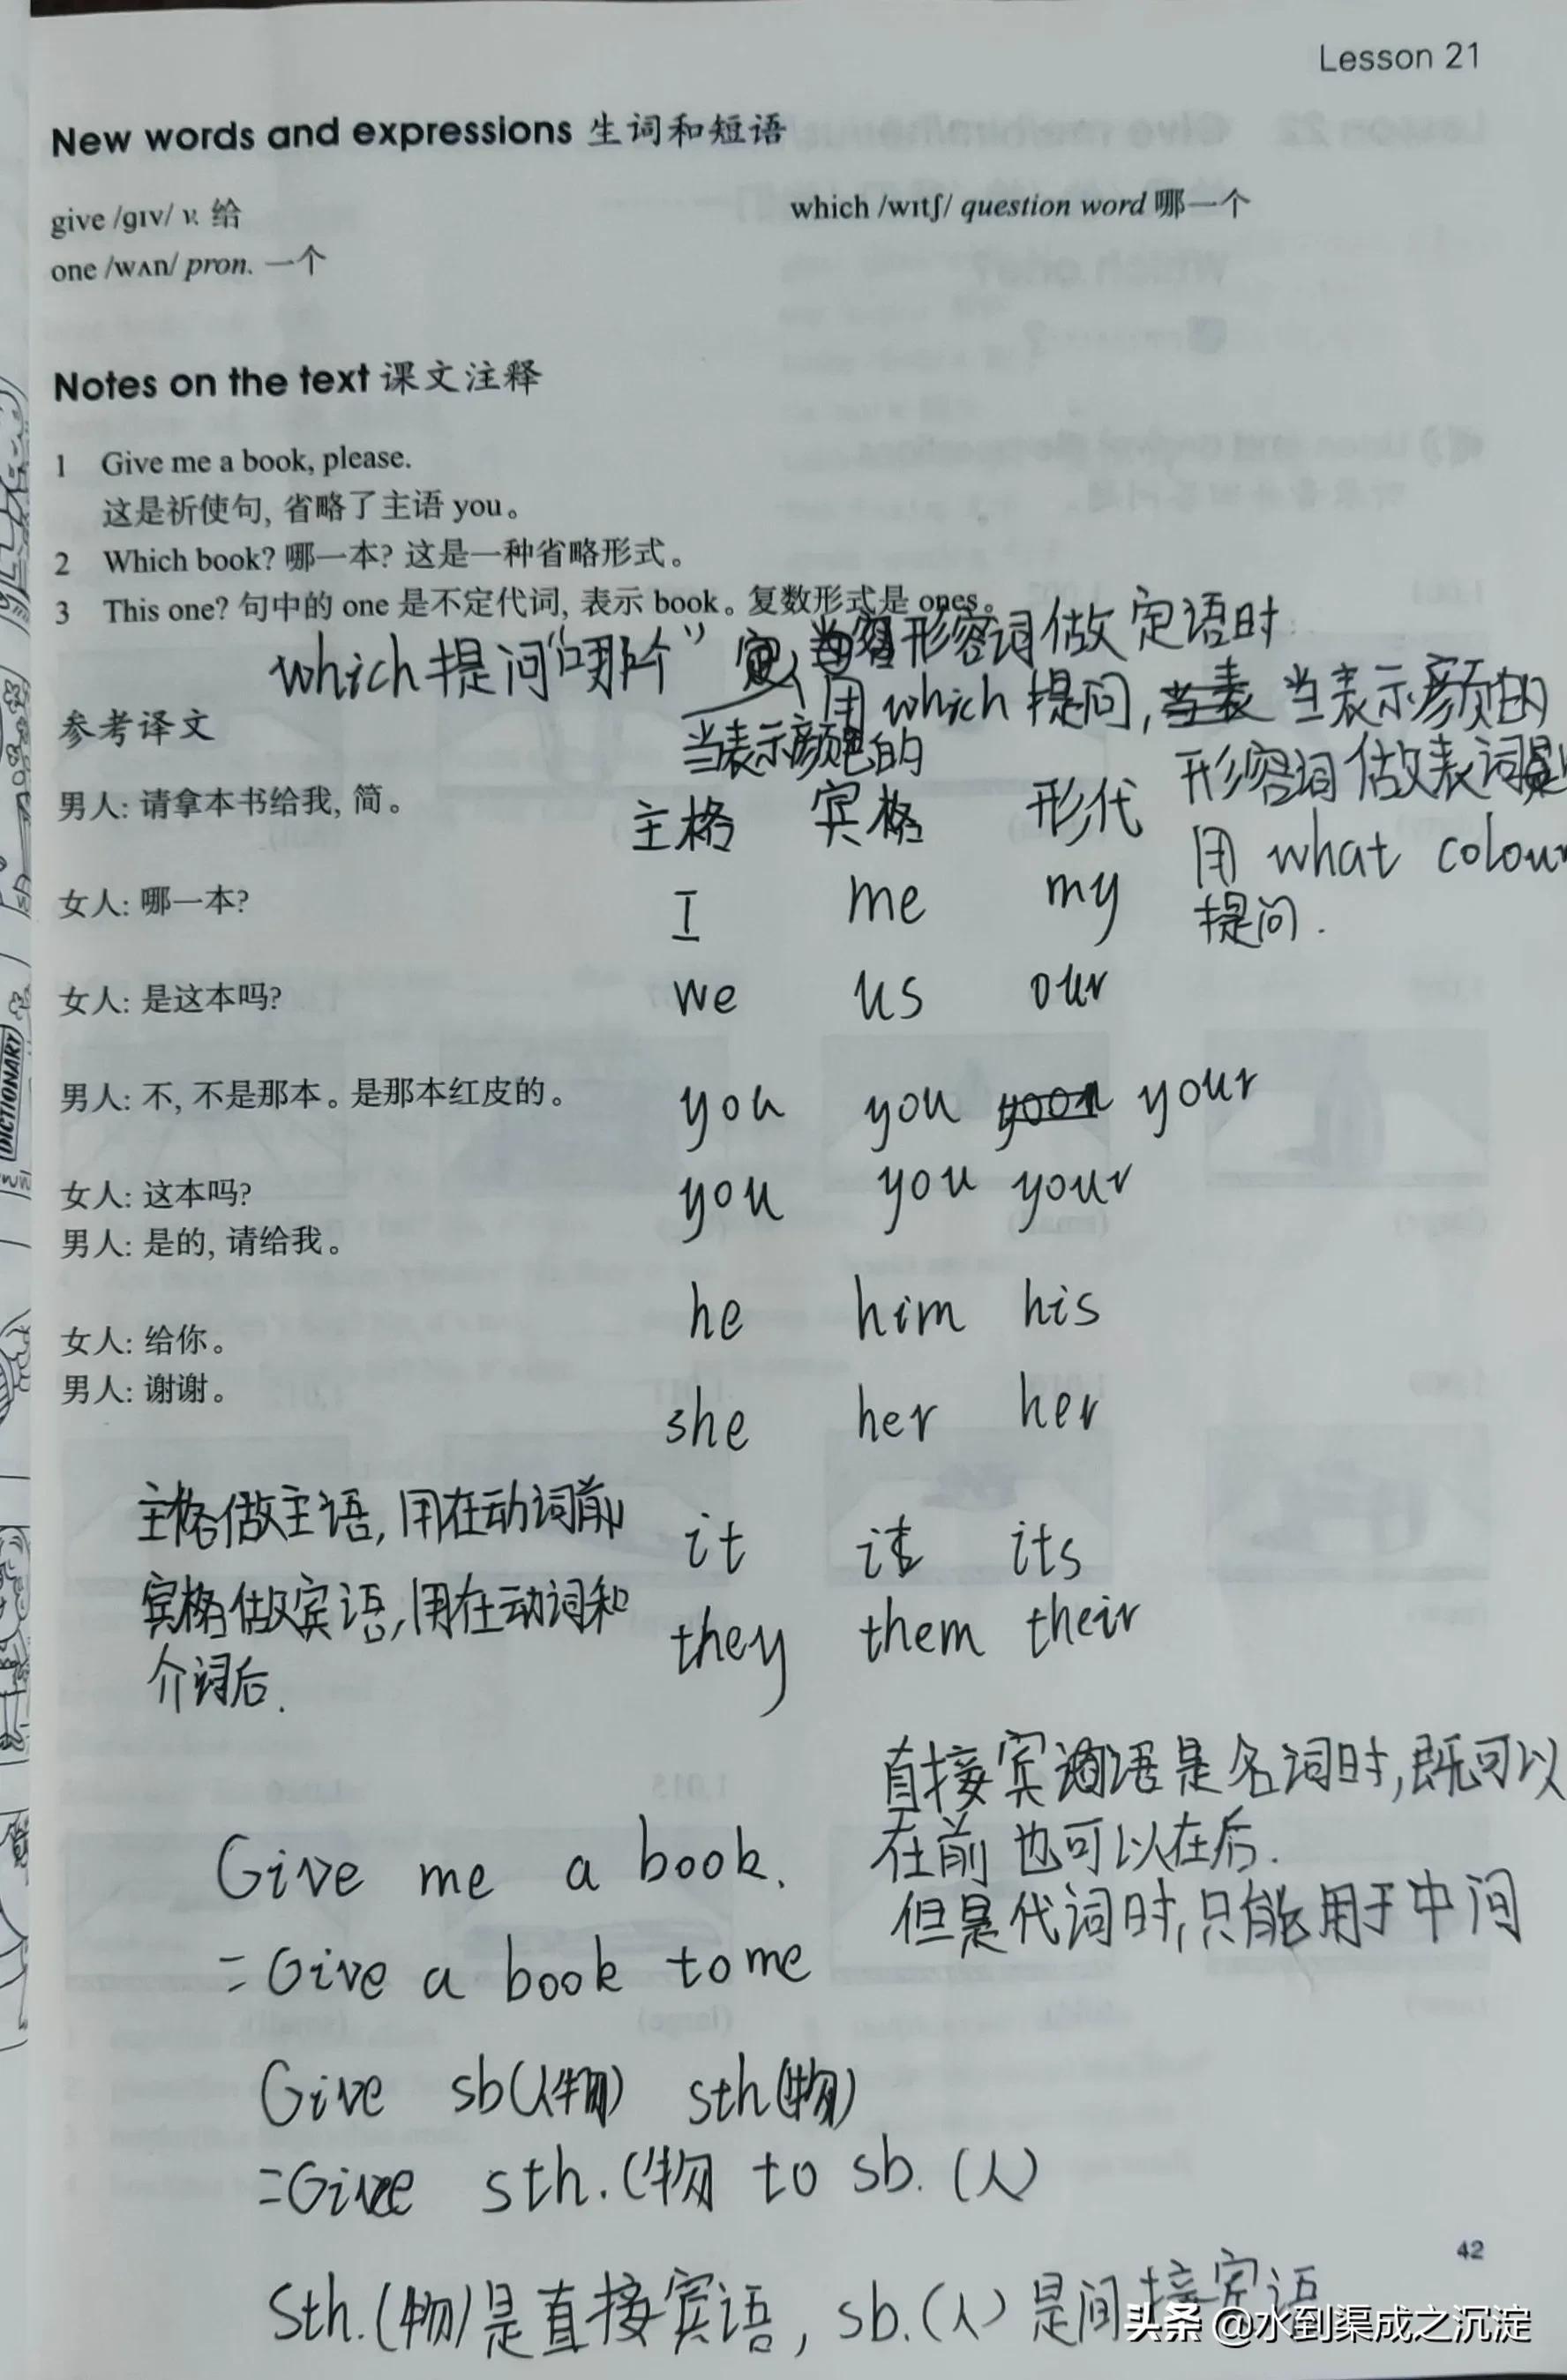 Lesson 21
New words and expressions 生词和短语
give /ɡɪv/ v. 给
which /wɪtʃ/ question word 哪一个
one /wʌn/ pron. 一个
Notes on the text 课文注释
1 Give me a book, please.
这是祈使句, 省略了主语 you。
2 Which book? 哪一本? 这是一种省略形式。
3 This one? 句中的 one 是不定代词, 表示 book。复数形式是 ones。
which提问“哪个”
形容词做定语时
用which提问, 当表示颜的
当表示颜色的
形容词做表词是
用 what colour
提问.
参考译文
男人: 请拿本书给我, 简。
女人: 哪一本?
女人: 是这本吗?
男人: 不, 不是那本。是那本红皮的。
女人: 这本吗?
男人: 是的, 请给我。
女人: 给你。
男人: 谢谢。
主格 宾格 形代
I me my
we us our
you you your
you you your
he him his
she her her
it it its
they them their
主格做主语, 用在动词前
宾格做宾语, 用在动词和
介词后.
直接宾语是名词时, 既可以
在前也可以在后.
但是代词时, 只能用于中间
Give me a book.
=Give a book to me
Give sb(人物) sth(物)
=Give sth.(物 to sb.(人)
Sth.(物)是直接宾语, sb.(人)是间接宾语
42
DICTIONARY
头条 @水到渠成之沉淀